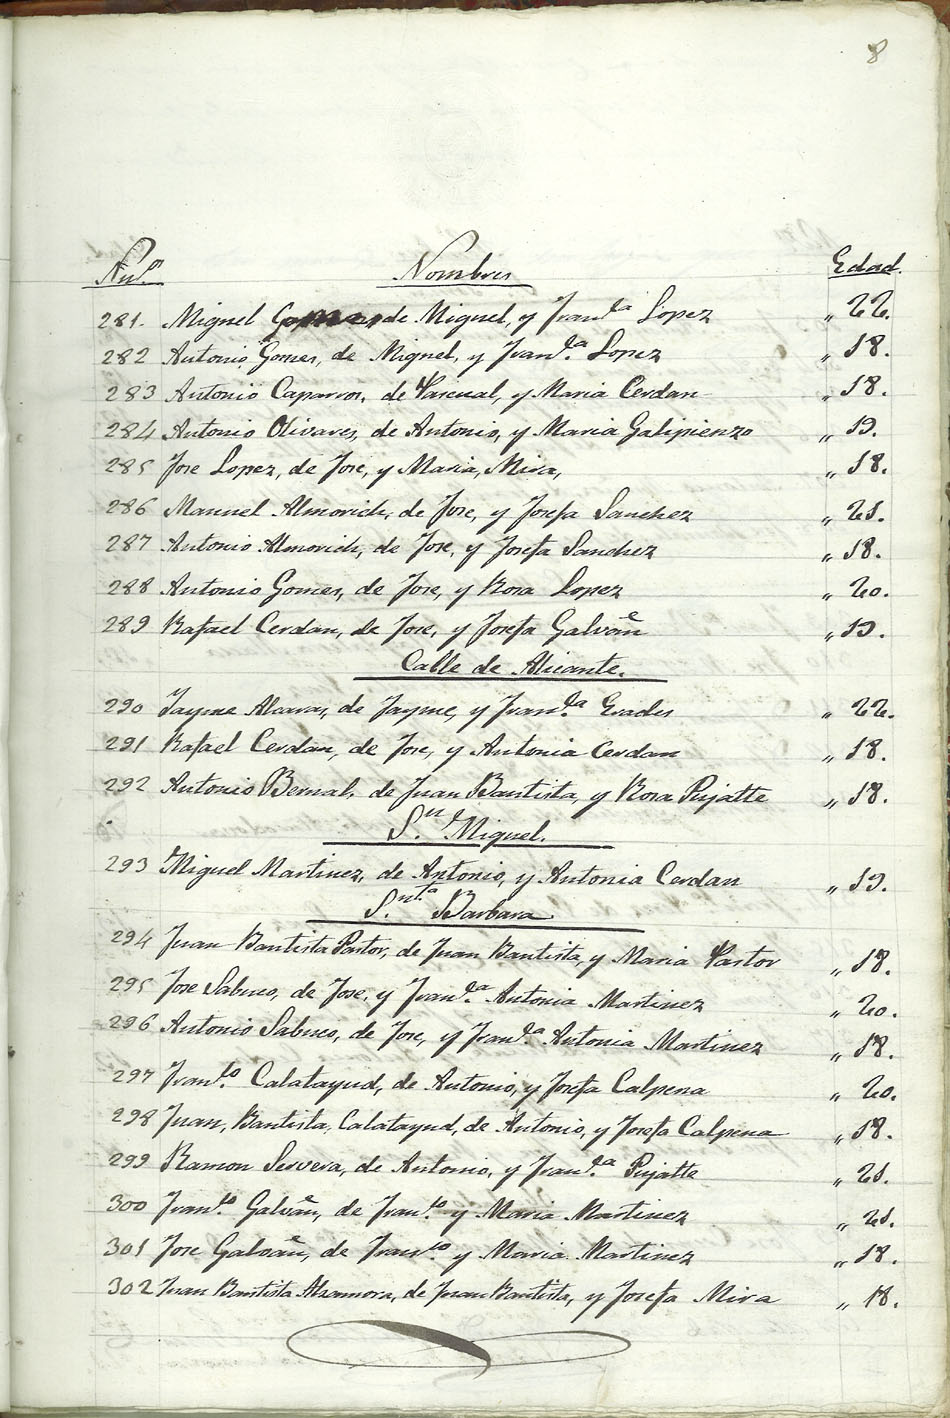 8
Num.º Nombres Edad.
281. Miguel Gomes de Miguel, y Fran.ca Lopez „ 22.
282 Antonio Gomes, de Miguel, y Fran.ca Lopez „ 18.
283 Antonio Caparros, de Pascual, y Maria Cerdan „ 18.
284 Antonio Olivares, de Antonio, y Maria Galipienzo „ 19.
285 Jose Lopez, de Jose, y Maria, Mira, „ 18.
286 Manuel Almorich, de Jose, y Josefa Sanchez „ 21.
287 Antonio Almorich, de Jose, y Josefa Sanchez „ 18.
288 Antonio Gomes, de Jose, y Rosa Lopez „ 20.
289 Rafael Cerdan, de Jose, y Josefa Galvañ „ 19.
Calle de Alicante.
290 Jayme Alcaras, de Jayme, y Fran.ca Erades „ 22.
291 Rafael Cerdan, de Jose, y Antonia Cerdan „ 18.
292 Antonio Bernal, de Juan Bautista, y Rosa Pujalte „ 18.
S.n Miguel.
293 Miguel Martinez, de Antonio, y Antonia Cerdan „ 19.
S.nta Barbara
294 Juan Bautista Pastor, de Juan Bautista, y Maria Pastor „ 18.
295 Jose Sabuco, de Jose, y Fran.ca Antonia Martinez „ 20.
296 Antonio Sabuco, de Jose, y Fran.ca Antonia Martinez „ 18.
297 Fran.co Calatayud, de Antonio, y Josefa Calpena „ 20.
298 Juan, Bautista, Calatayud, de Antonio, y Josefa Calpena „ 18.
299 Ramon Servera, de Antonio, y Fran.ca Pujalte „ 21.
300 Fran.co Galvañ, de Fran.co y Maria Martinez „ 21.
301 Jose Galvañ, de Fran.co y Maria Martinez „ 18.
302 Juan Bautista Alzamora, de Juan Bautista, y Josefa Mira „ 18.